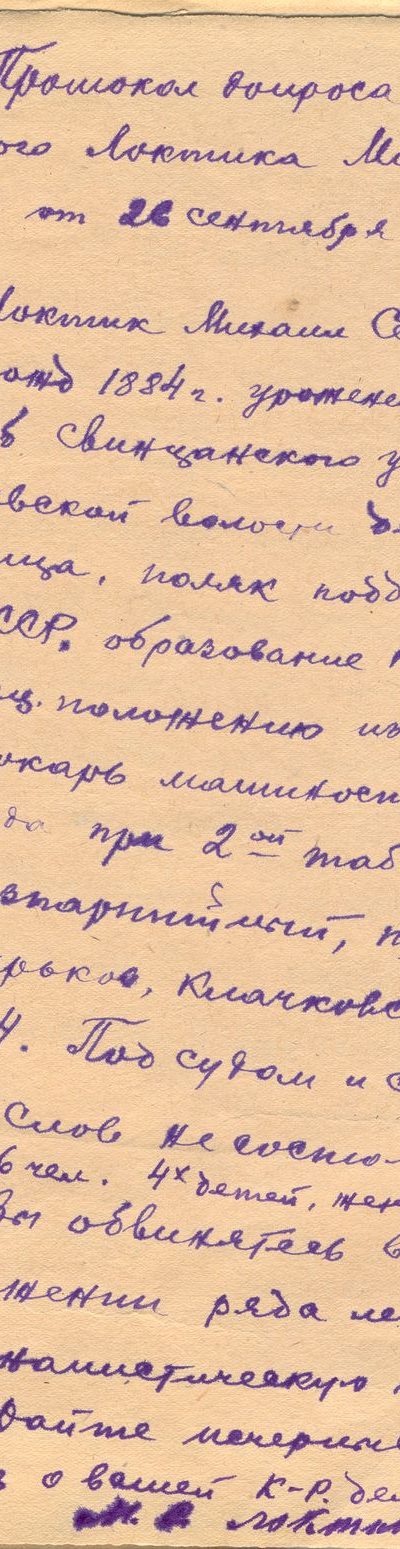 Протокол допроса
ого Локтика Ми
от 26 сентября
Локтик Михаил Се
ожд 1884 г. уроженец
в Свинцанского у
вской волости д
ица, поляк подд
ССР. образование н
ц. положению из
окарь машиност
да при 2ой таб
зпартийный, п
рьков, Клочковс
4. Под судом и с
слов не состо-
6 чел. 4х детей, жен
Вы обвиняетесь в
жении ряда ле
налистическую
Дайте исчерпыв
з о вашей К-Р. дея
М. С. Локтик